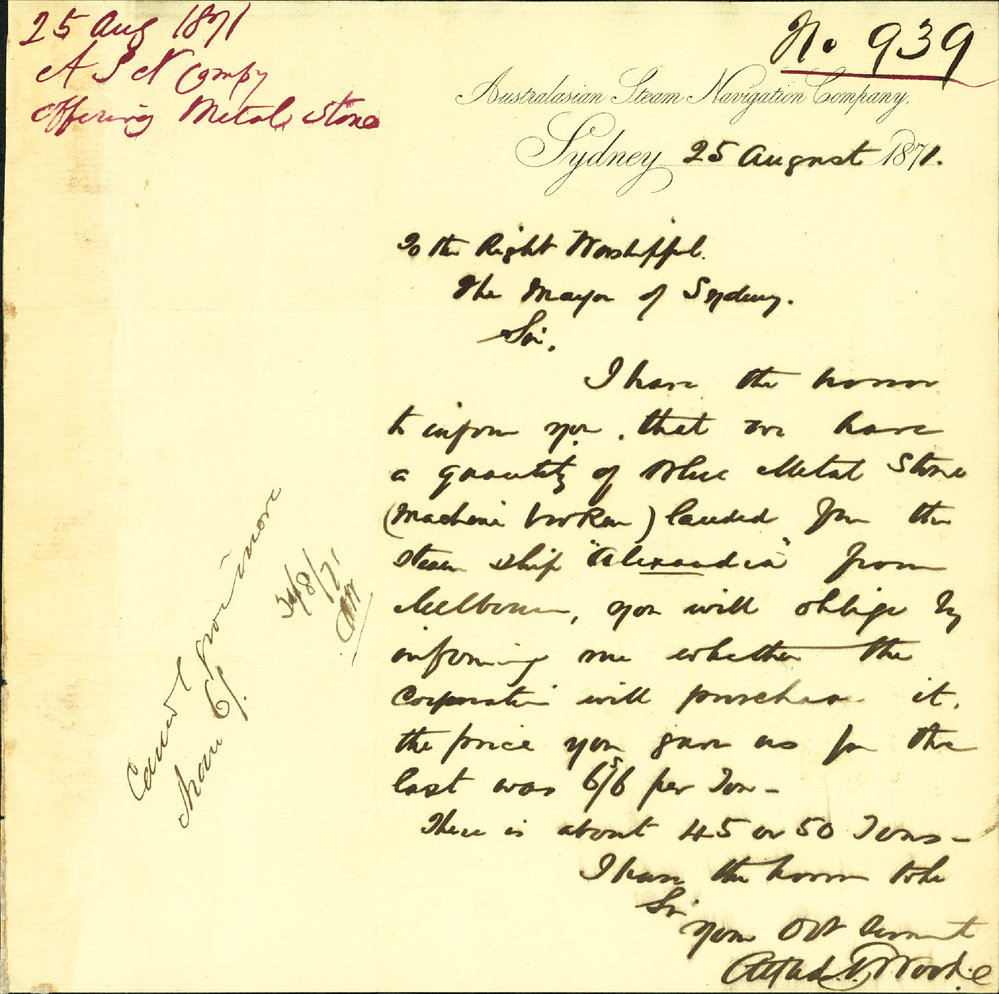 25 Aug 1871
A S N Compy
Offering Metal Stone
No 939
Australasian Steam Navigation Company.
Sydney 25 August 1871.
To the Right Worshipful
The Mayor of Sydney.
Sir,
I have the honor
to inform you, that we have
a quantity of Blue Metal Stone
(Machine broken) landed from the
Steam Ship "Alexandra" from
Melbourne, you will oblige by
informing me whether the
Corporation will purchase it.
the price you gave us for the
last was 6s/6 per Ton -
There is about 45 or 50 Tons -
I have the honor to be
Sir
Your Obt Servant
Cannot give more
than 6/.
/8/71